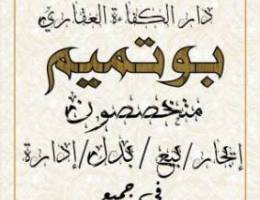 دار الكفاءة العقاري
بوتميم
متخصصون
إيجار/بيع/بدل/إدارة
في جميع